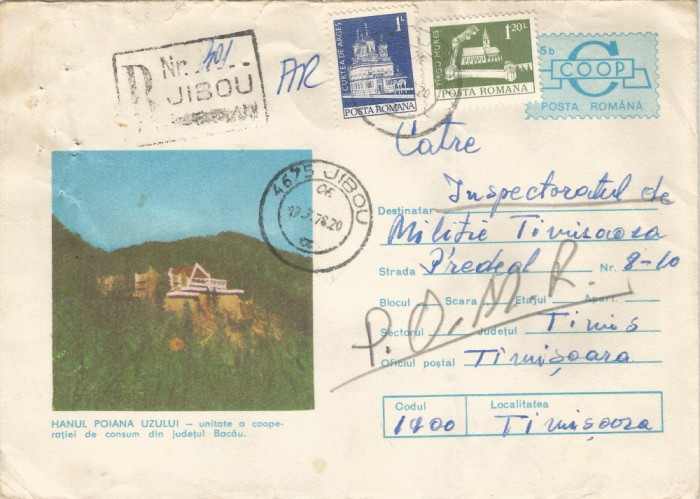 R Nr. 301
JIBOU
AR
CURTEA DE ARGEȘ
1L
POSTA ROMANA
TÂRGU MUREȘ
1.20L
POSTA ROMANA
5b
COOP
POȘTA ROMÂNĂ
Catre
Destinatar Inspectoratul de
Miliție Timisoara
Strada Predeal Nr. 8-10
Blocul Scara Etajul Apart.
Sectorul Județul Timis
Oficiul poștal Timișoara
P.O.M.R.
Codul
1900
Localitatea
Timișoara
4675 JIBOU
OE
HANUL POIANA UZULUI — unitate a coope-
rației de consum din județul Bacău.